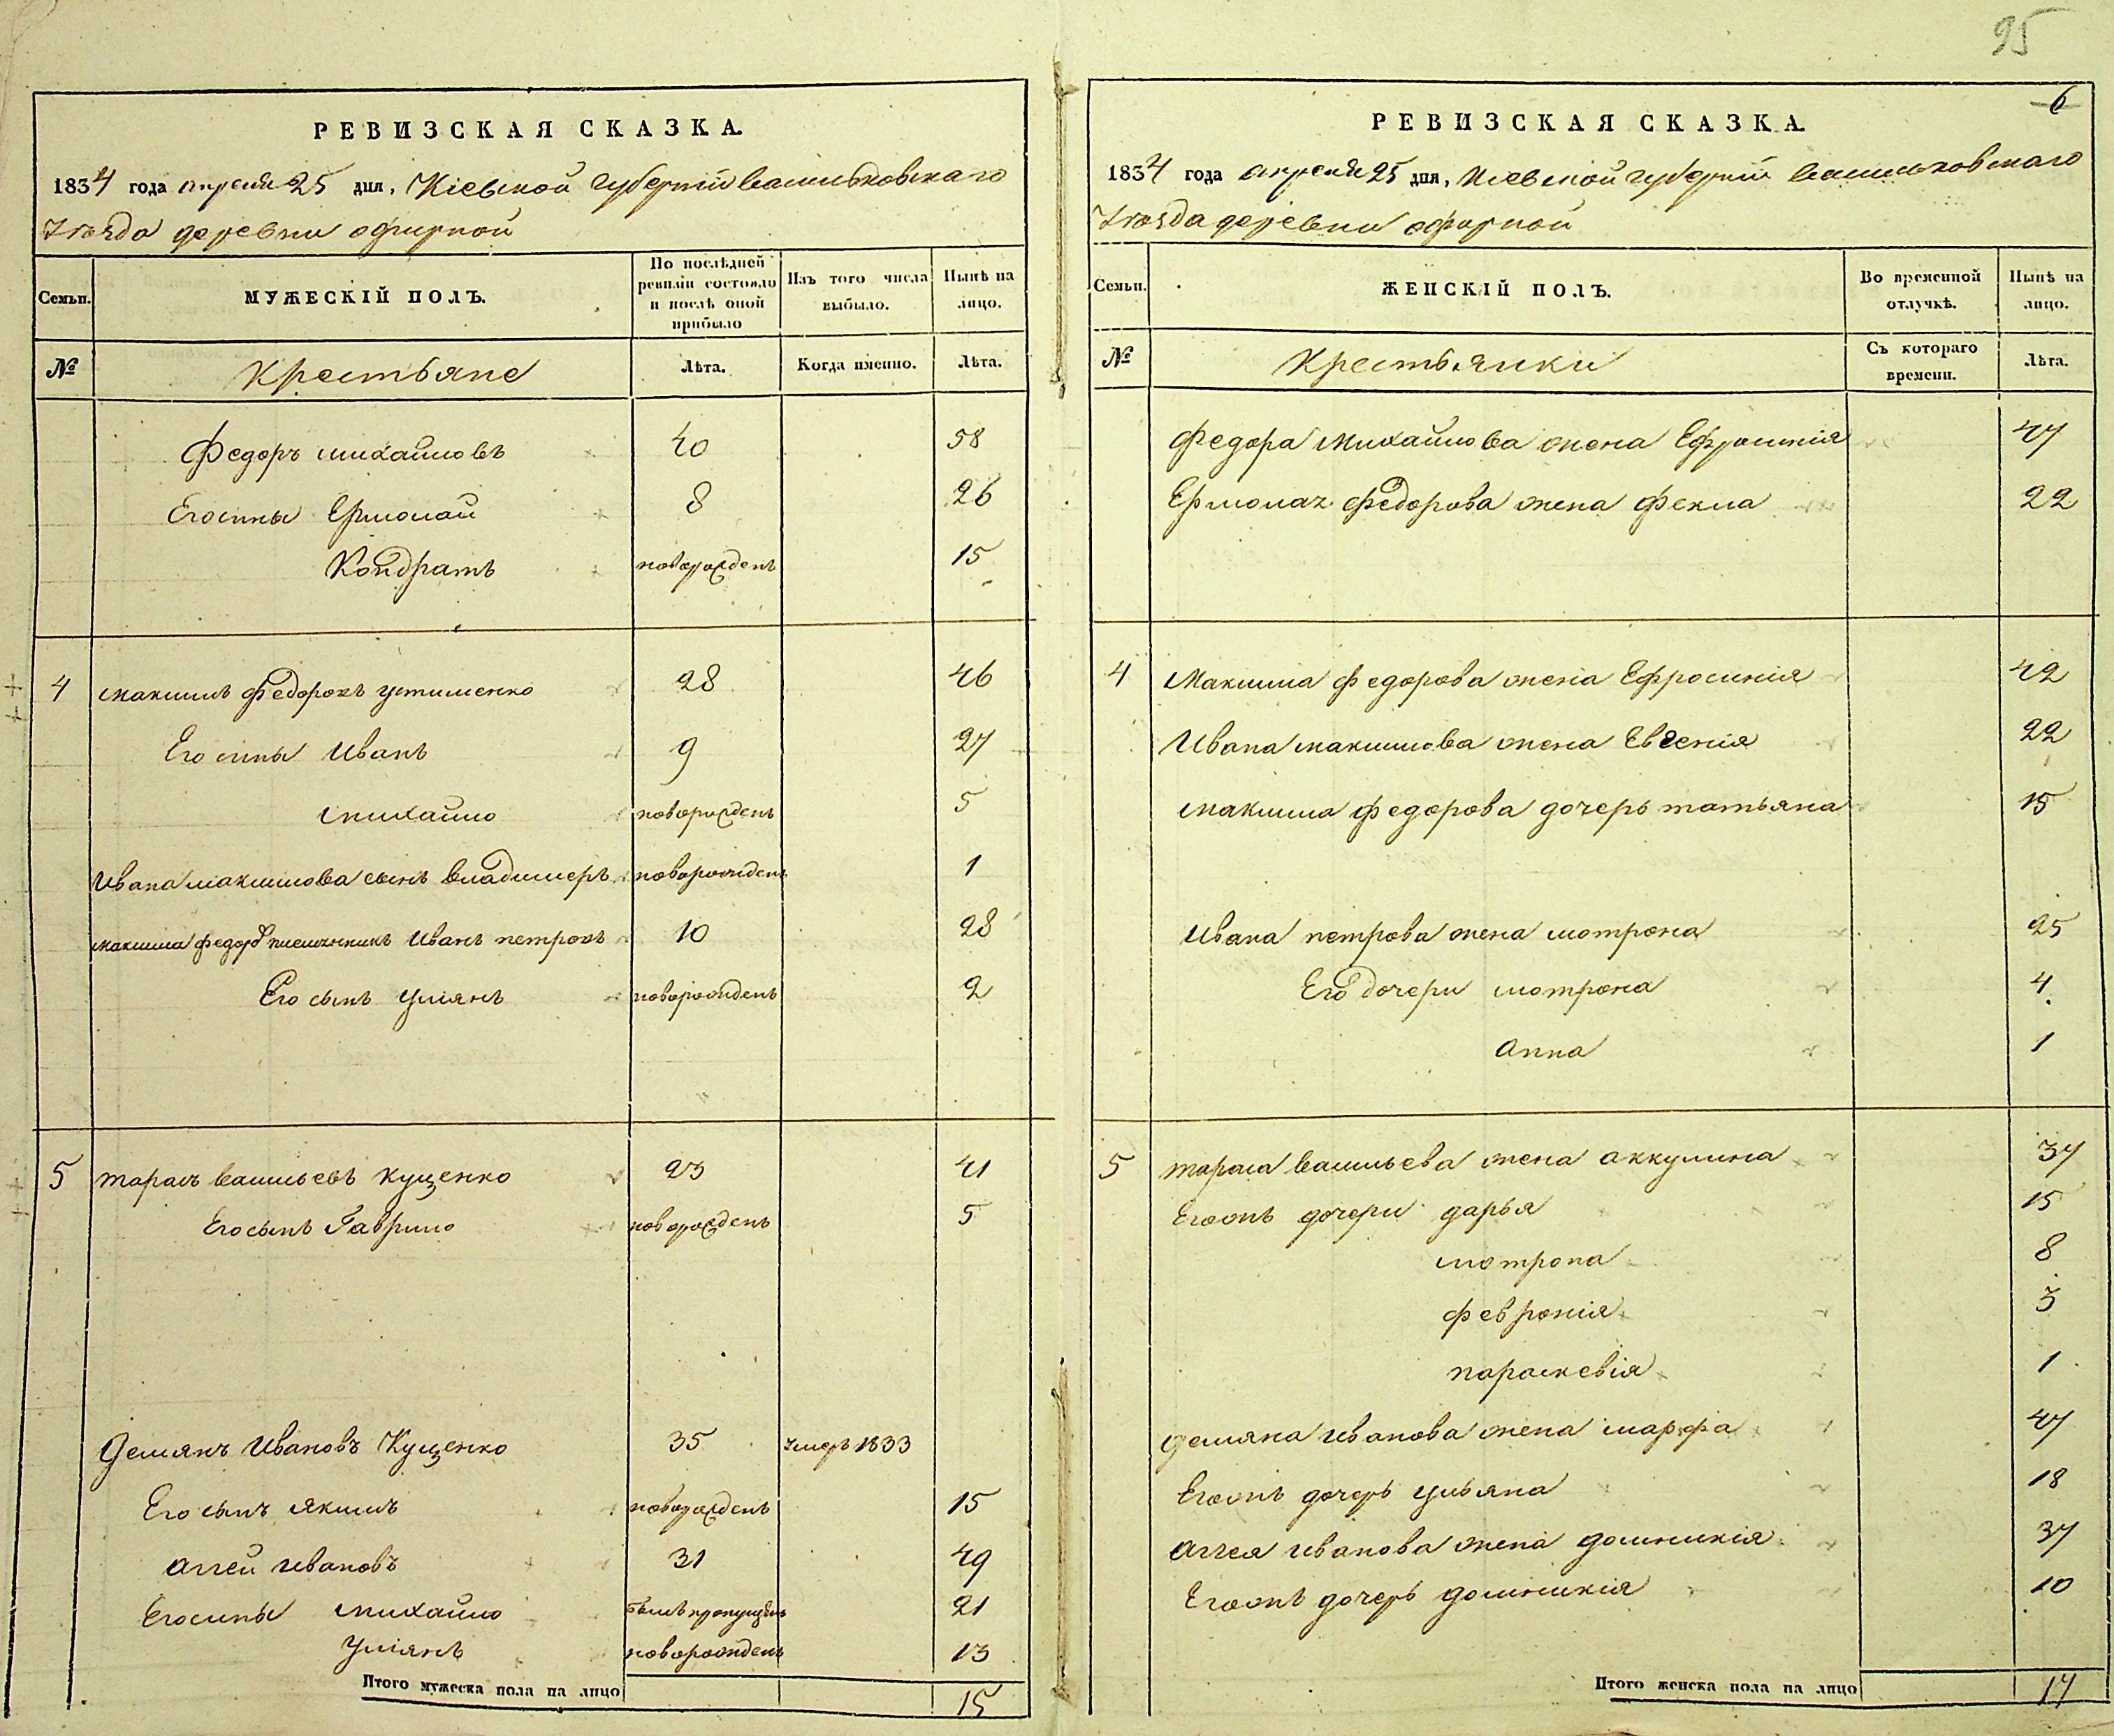 95
РЕВИЗСКАЯ СКАЗКА.
1834 года апреля 25 дня, Кіевской губерніи васильковскаго
Уезда деревни офирной
Семьи. МУЖЕСКІЙ ПОЛЪ. По послѣдней ревизіи состояло и послѣ оной прибыло Изъ того числа выбыло. Нынѣ на лицо.
№ Крестьяне Лѣта. Когда именно. Лѣта.
Федоръ михайловъ 40 58
Его сины Ермолай 8 26
Кондратъ новорожденъ 15
4 максимъ федоровъ устименко 28 46
Его сины Иванъ 9 27
михайло новорожденъ 5
Ивана максимова сынъ владимеръ новорожденъ 1
максима федоров племянникъ Иванъ петровъ 10 28
Его сынъ Улянъ новорожденъ 2
5 тарасъ васильевъ Кущенко 23 41
Его сынъ Гаврило новорожденъ 5
Демянъ Ивановъ Кущенко 35 умеръ 1833
Его сынъ Якимъ новорожденъ 15
Аггей ивановъ 31 49
Его сины михайло былъ пропущенъ 21
Улянъ новорожденъ 13
Итого мужеска пола на лицо 15
6
РЕВИЗСКАЯ СКАЗКА.
1834 года апреля 25 дня, Кіевской губерніи васильковскаго
Уезда деревни офирной
Семьи. ЖЕНСКІЙ ПОЛЪ. Во временной отлучкѣ. Нынѣ на лицо.
№ Крестьянки Съ котораго времени. Лѣта.
Федора михайлова жена Ефросинія 47
Ермолая федорова жена фекла 22
4 Максима федорова жена Ефросинія 42
Ивана максимова жена Евгенія 22
максима федорова дочерь татьяна 15
Ивана петрова жена мотрона 25
Его дочери мотрона 4
Анна 1
5 тараса васильева жена аккулина 37
Егожъ дочери дарья 15
мотрона 8
февронія 3
параскевія 1
демяна иванова жена марфа 47
Егожъ дочерь ульяна 18
Аггея иванова жена домникія 37
Егожъ дочерь домникія 10
Итого женска пола на лицо 17